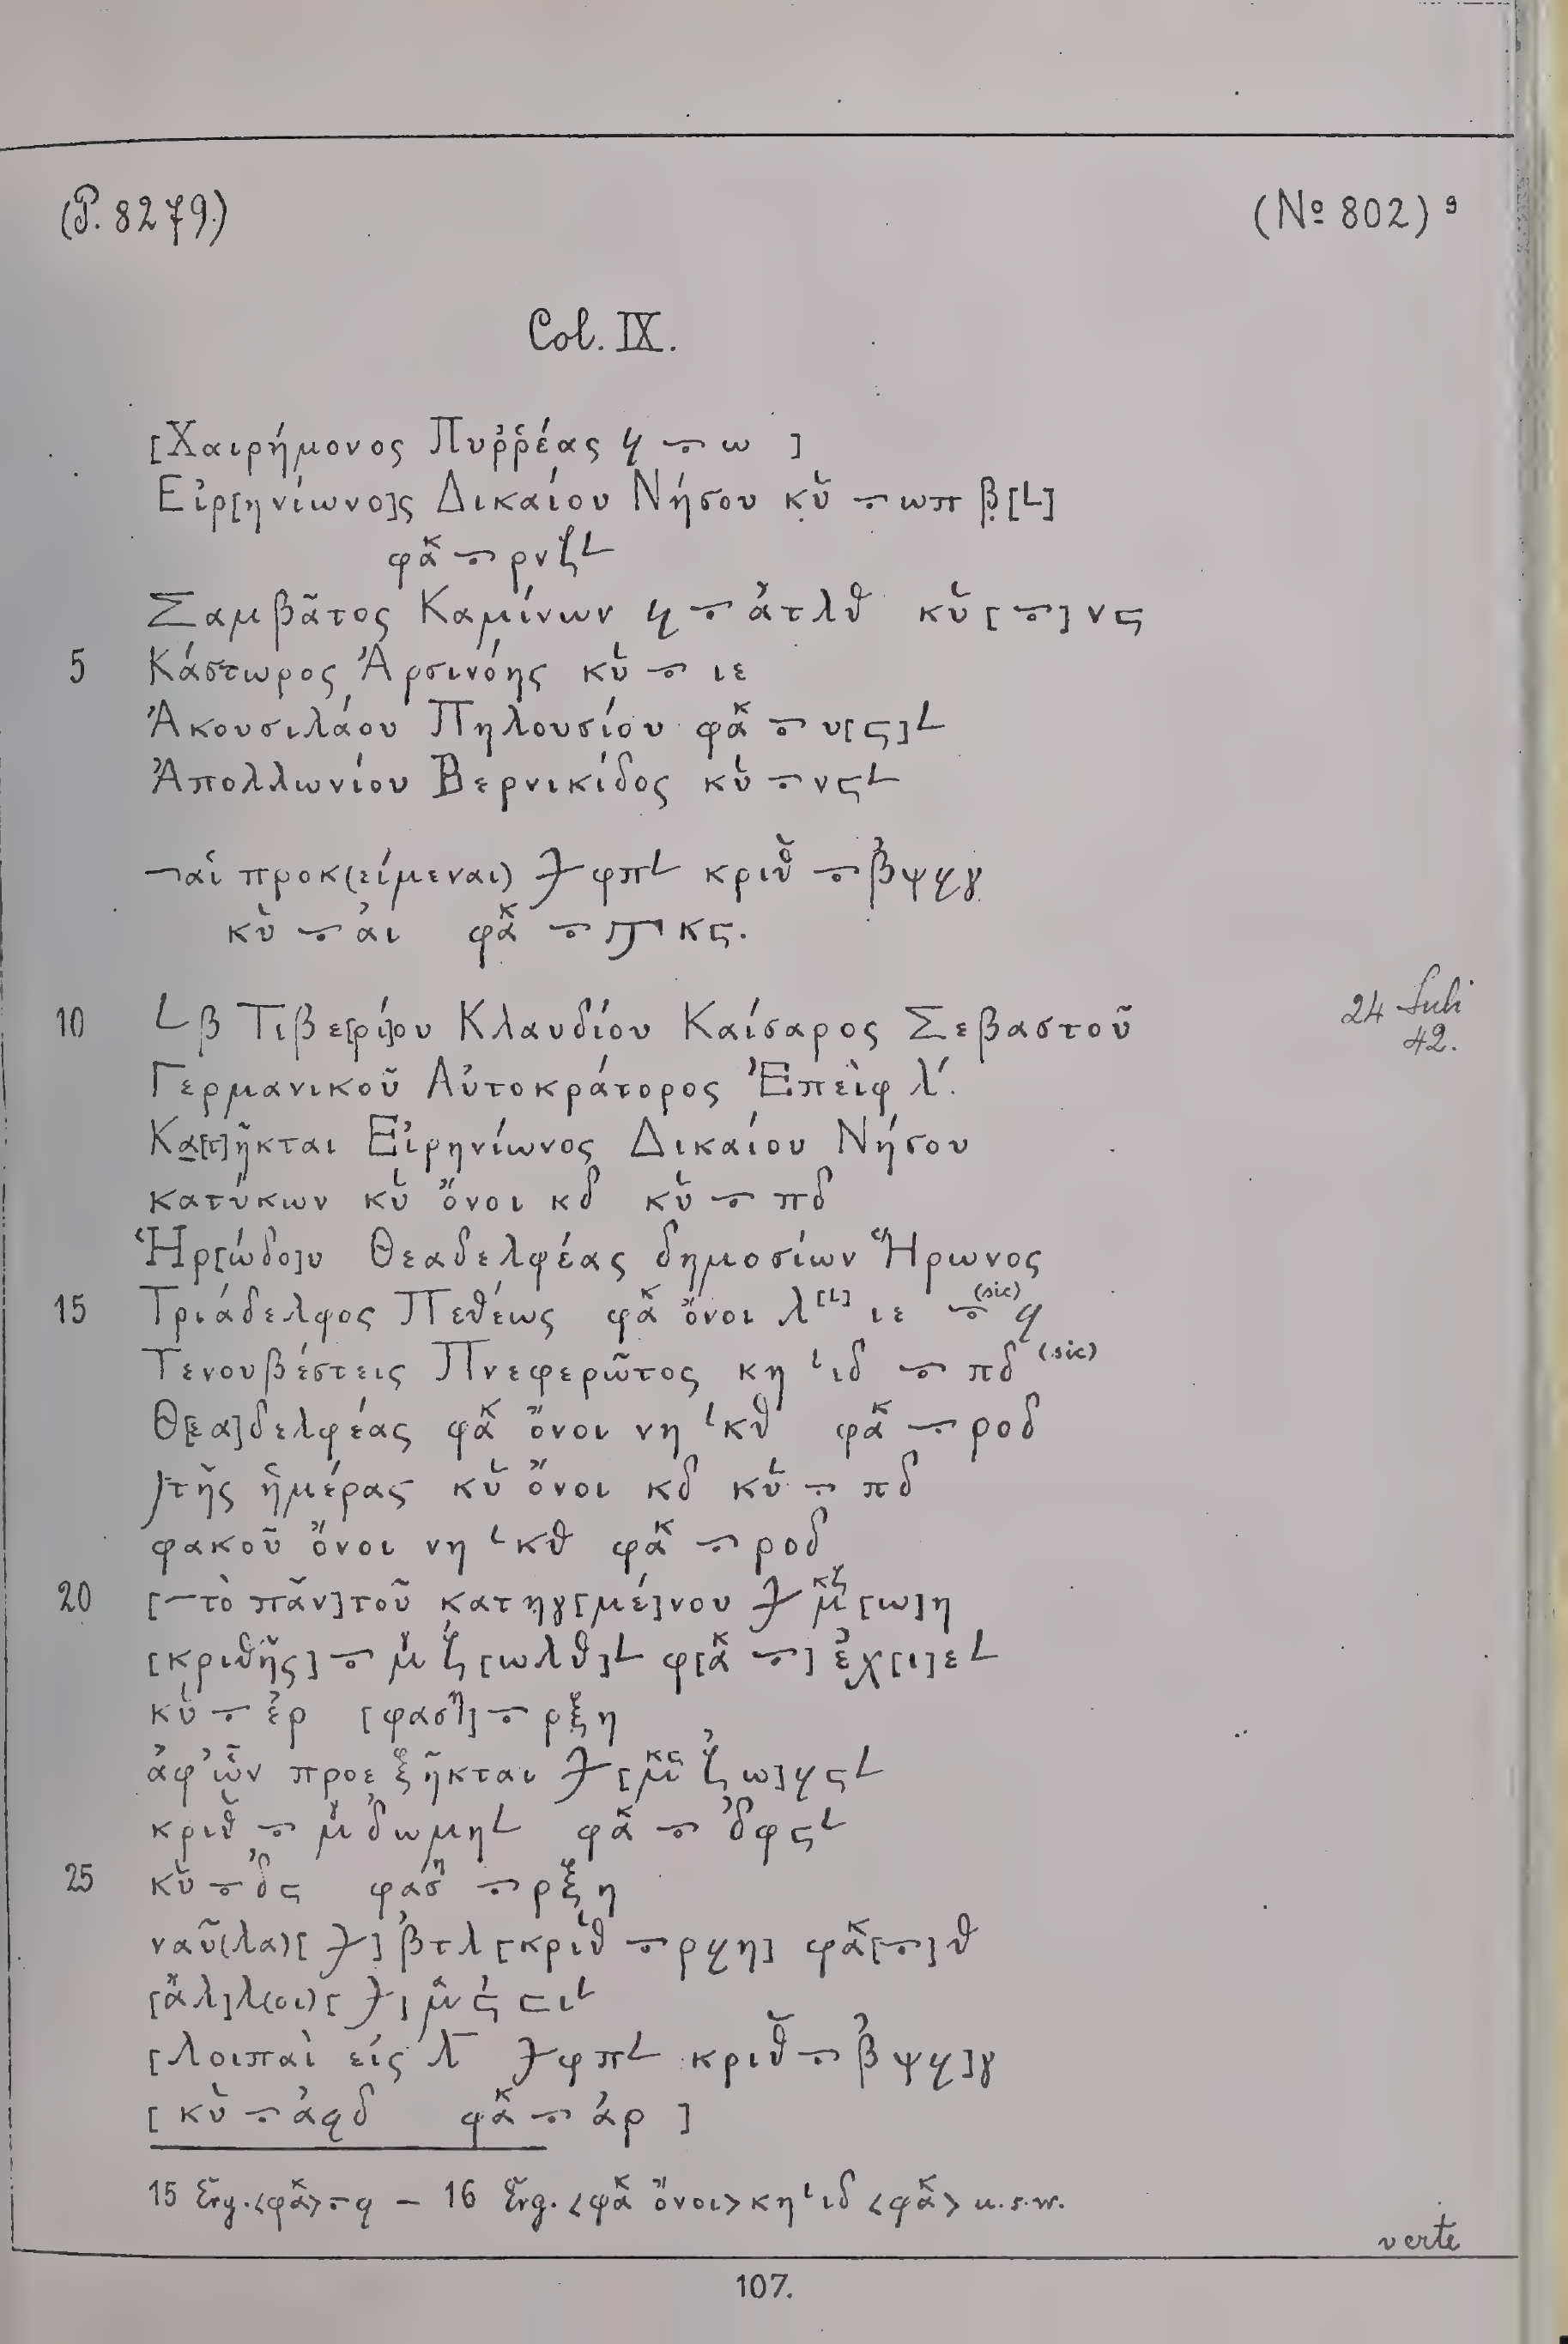 (P. 8279.) (No 802) 9
Col. IX.
[Χαιρήμονος Πυῤῥέας ϥ ⨪ ω ]
Εἰρ[ηνίωνο]ς Δικαίου Νήσου κυ̉ ⨪ ωπ β̣[L]
φακ ⨪ ρνζL
Σαμβᾶτος Καμίνων ϥ ⨪ ἀτλθ κυ̉ [⨪] νϛ
5 Κάστωρος Ἀρσινόης κυ̉ ⨪ ιε
Ἀκουσιλάου Πηλουσίου φακ ⨪ υ[ϛ]L
Ἀπολλωνίου Βερνικίδος κυ̉ ⨪ νϛL
αἱ προκ(είμεναι) φπL κριθ ⨪ βψϥγ
κυ̉ ⨪ ἀι φακ ⨪ ϡκϛ.
10 L β Τιβε[ρί]ου Κλαυδίου Καίσαρος Σεβαστοῦ 24 Juli 42.
Γερμανικοῦ Αὐτοκράτορος Ἐπεὶφ λ´.
Κα[τ]ῆκται Εἰρηνίωνος Δικαίου Νήσου
κατύκων κυ̉ ὄνοι κδ κυ̉ ⨪ πδ
Ἡρ[ώδο]υ Θεαδελφέας δημοσίων Ἥρωνος
15 Τριάδελφος Πεθέως φακ ὄνοι λ[L] ιε ⨪ (sic) ϥ
Τενουβέστεις Πνεφερῶτος κη ιδ ⨪ πδ (sic)
Θ[εα]δελφέας φακ ὄνοι νη κθ φακ ⨪ ροδ
/τῆς ἡμέρας κυ̉ ὄνοι κδ κυ̉ ⨪ πδ
φακοῦ ὄνοι νη κθ φακ ⨪ ροδ
20 [—τὸ πᾶν] τοῦ κατηγ[μέ]νου μκζ [ω]η
[κριθῆς] ⨪ μγ ζ [ωλθ]L φ[ακ ⨪] ἐχ[ι]εL
κυ̉ ⨪ ἐρ [φασή] ⨪ ρξη
ἀφ’ ὧν προεξῆκται [μκϛ ζω]ϥϛL
κριθ ⨪ μγ δωμηL φακ ⨪ δφϛL
25 κυ̉ ⨪ δϛ φασή ⨪ ρξη
ναῦ(λα) [ ] βτλ [κριθ ⨪ ρϥη] φακ [⨪] θ
[ἄλ]λ(οι) [ ] μα ϛ ϛιL
[λοιπαὶ εἰς λ φπL κριθ ⨪ βψϥ]γ
[κυ̉ ⨪ ἀϥδ φακ ⨪ ἀρ ]
15 Erg. <φακ> ⨪ ϥ – 16 Erg. <φακ ὄνοι> κη ιδ <φακ> u.s.w.
verte
107.